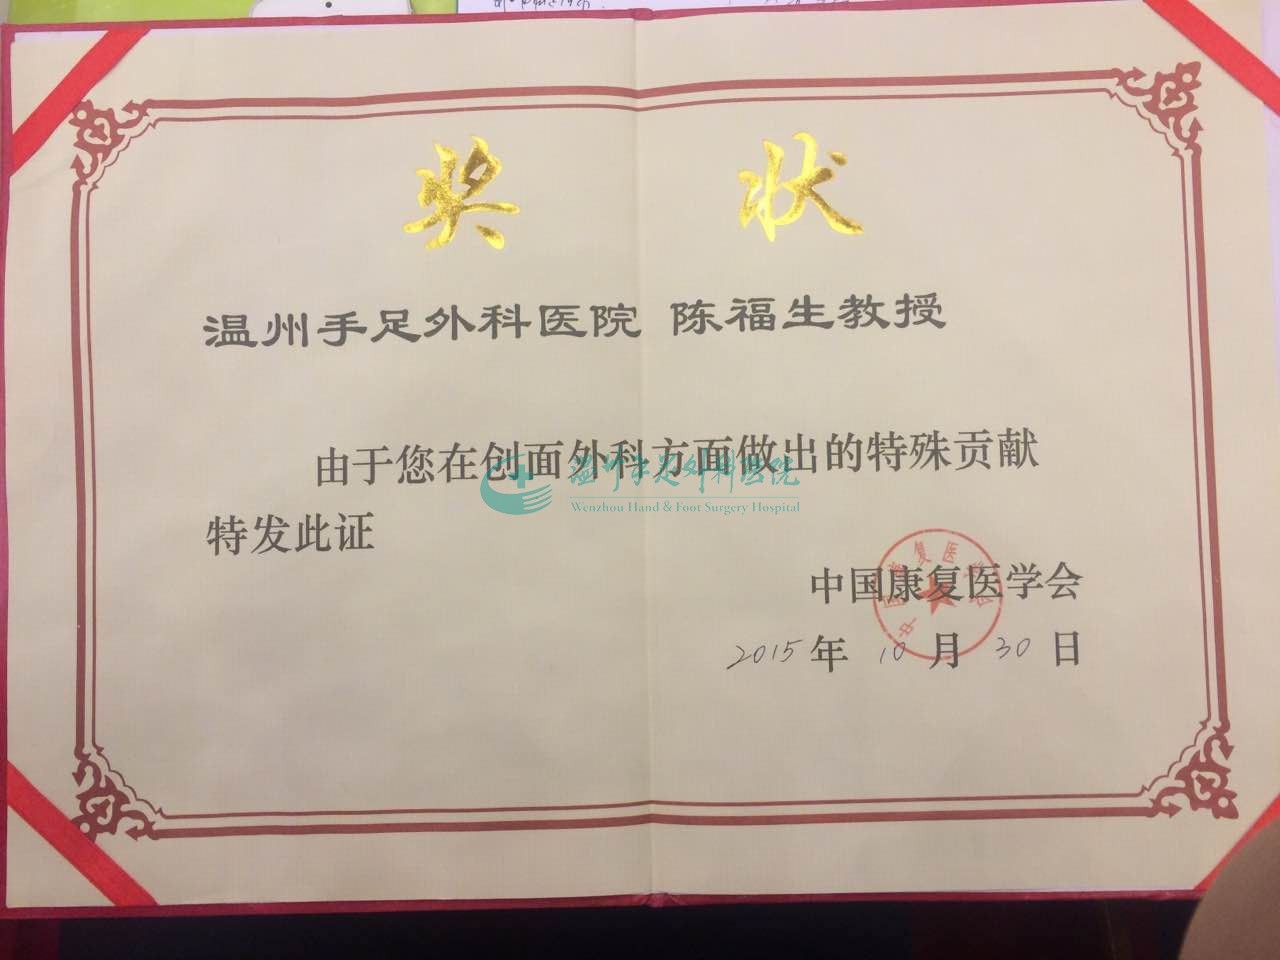 奖状
温州手足外科医院 陈福生教授
由于您在创面外科方面做出的特殊贡献
温州手足外科医院
Wenzhou Hand & Foot Surgery Hospital
特发此证
中国康复医学会
中国康复医学会
2015年 10月 30日